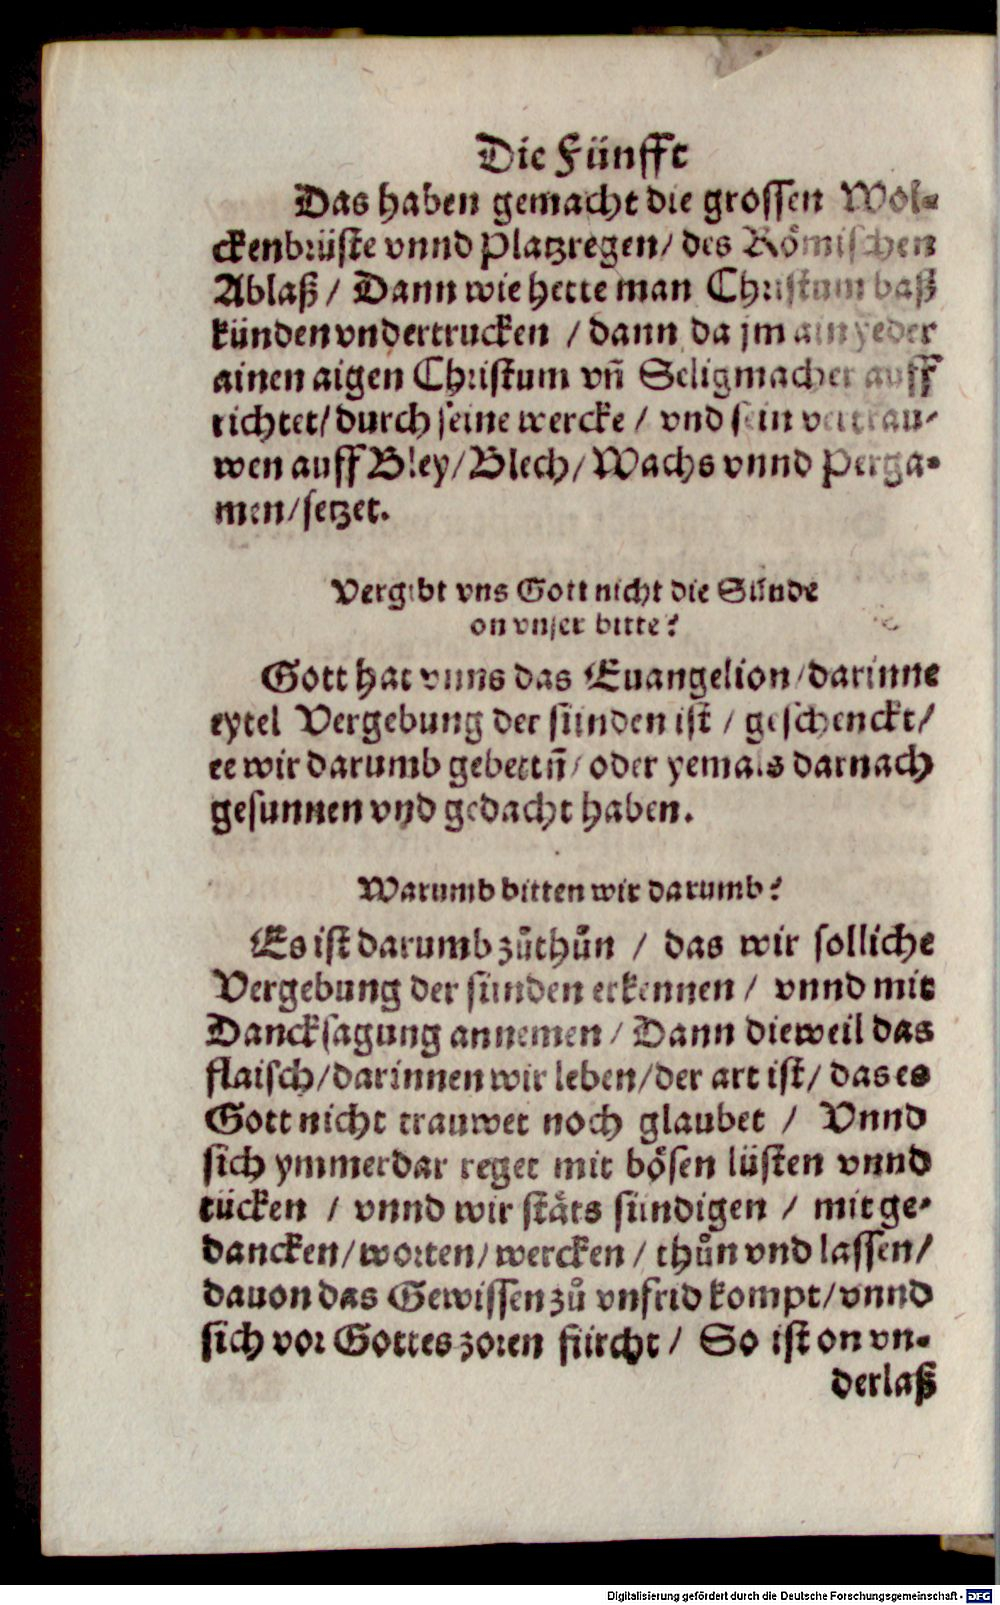 Die Fünfft
Das haben gemacht die grossen Wol-
ckenbrüste vnnd Platzregen/ des Römischen
Ablaß / Dann wie hette man Christum baß
künden vndertrucken / dann da jm ain yeder
ainen aigen Christum vñ Seligmacher auff
richtet/ durch seine wercke / vnd sein vertrau-
wen auff Bley/ Blech/ Wachs vnnd Perga-
men/ setzet.
Vergibt vns Gott nicht die Sünde
on vnser bitte?
Gott hat vnns das Euangelion/ darinne
eytel Vergebung der sünden ist / geschenckt/
ee wir darumb gebettñ/ oder yemals darnach
gesunnen vnd gedacht haben.
Warumb bitten wir darumb?
Es ist darumb zůthůn / das wir solliche
Vergebung der sünden erkennen / vnnd mit
Dancksagung annemen / Dann dieweil das
flaisch/ darinnen wir leben/ der art ist/ das es
Gott nicht trauwet noch glaubet / Vnnd
sich ymmerdar reget mit bösen lüsten vnnd
tücken / vnnd wir stäts sündigen / mit ge-
dancken/ worten/ wercken / thůn vnd lassen/
dauon das Gewissen zů vnfrid kompt/ vnnd
sich vor Gottes zoren fürcht / So ist on vn-
derlaß
Digitalisierung gefördert durch die Deutsche Forschungsgemeinschaft - DFG